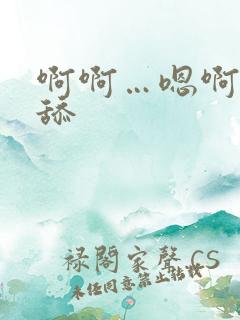 啊啊…嗯啊
舔
禄閣家聲 CS
未任同意禁止转载